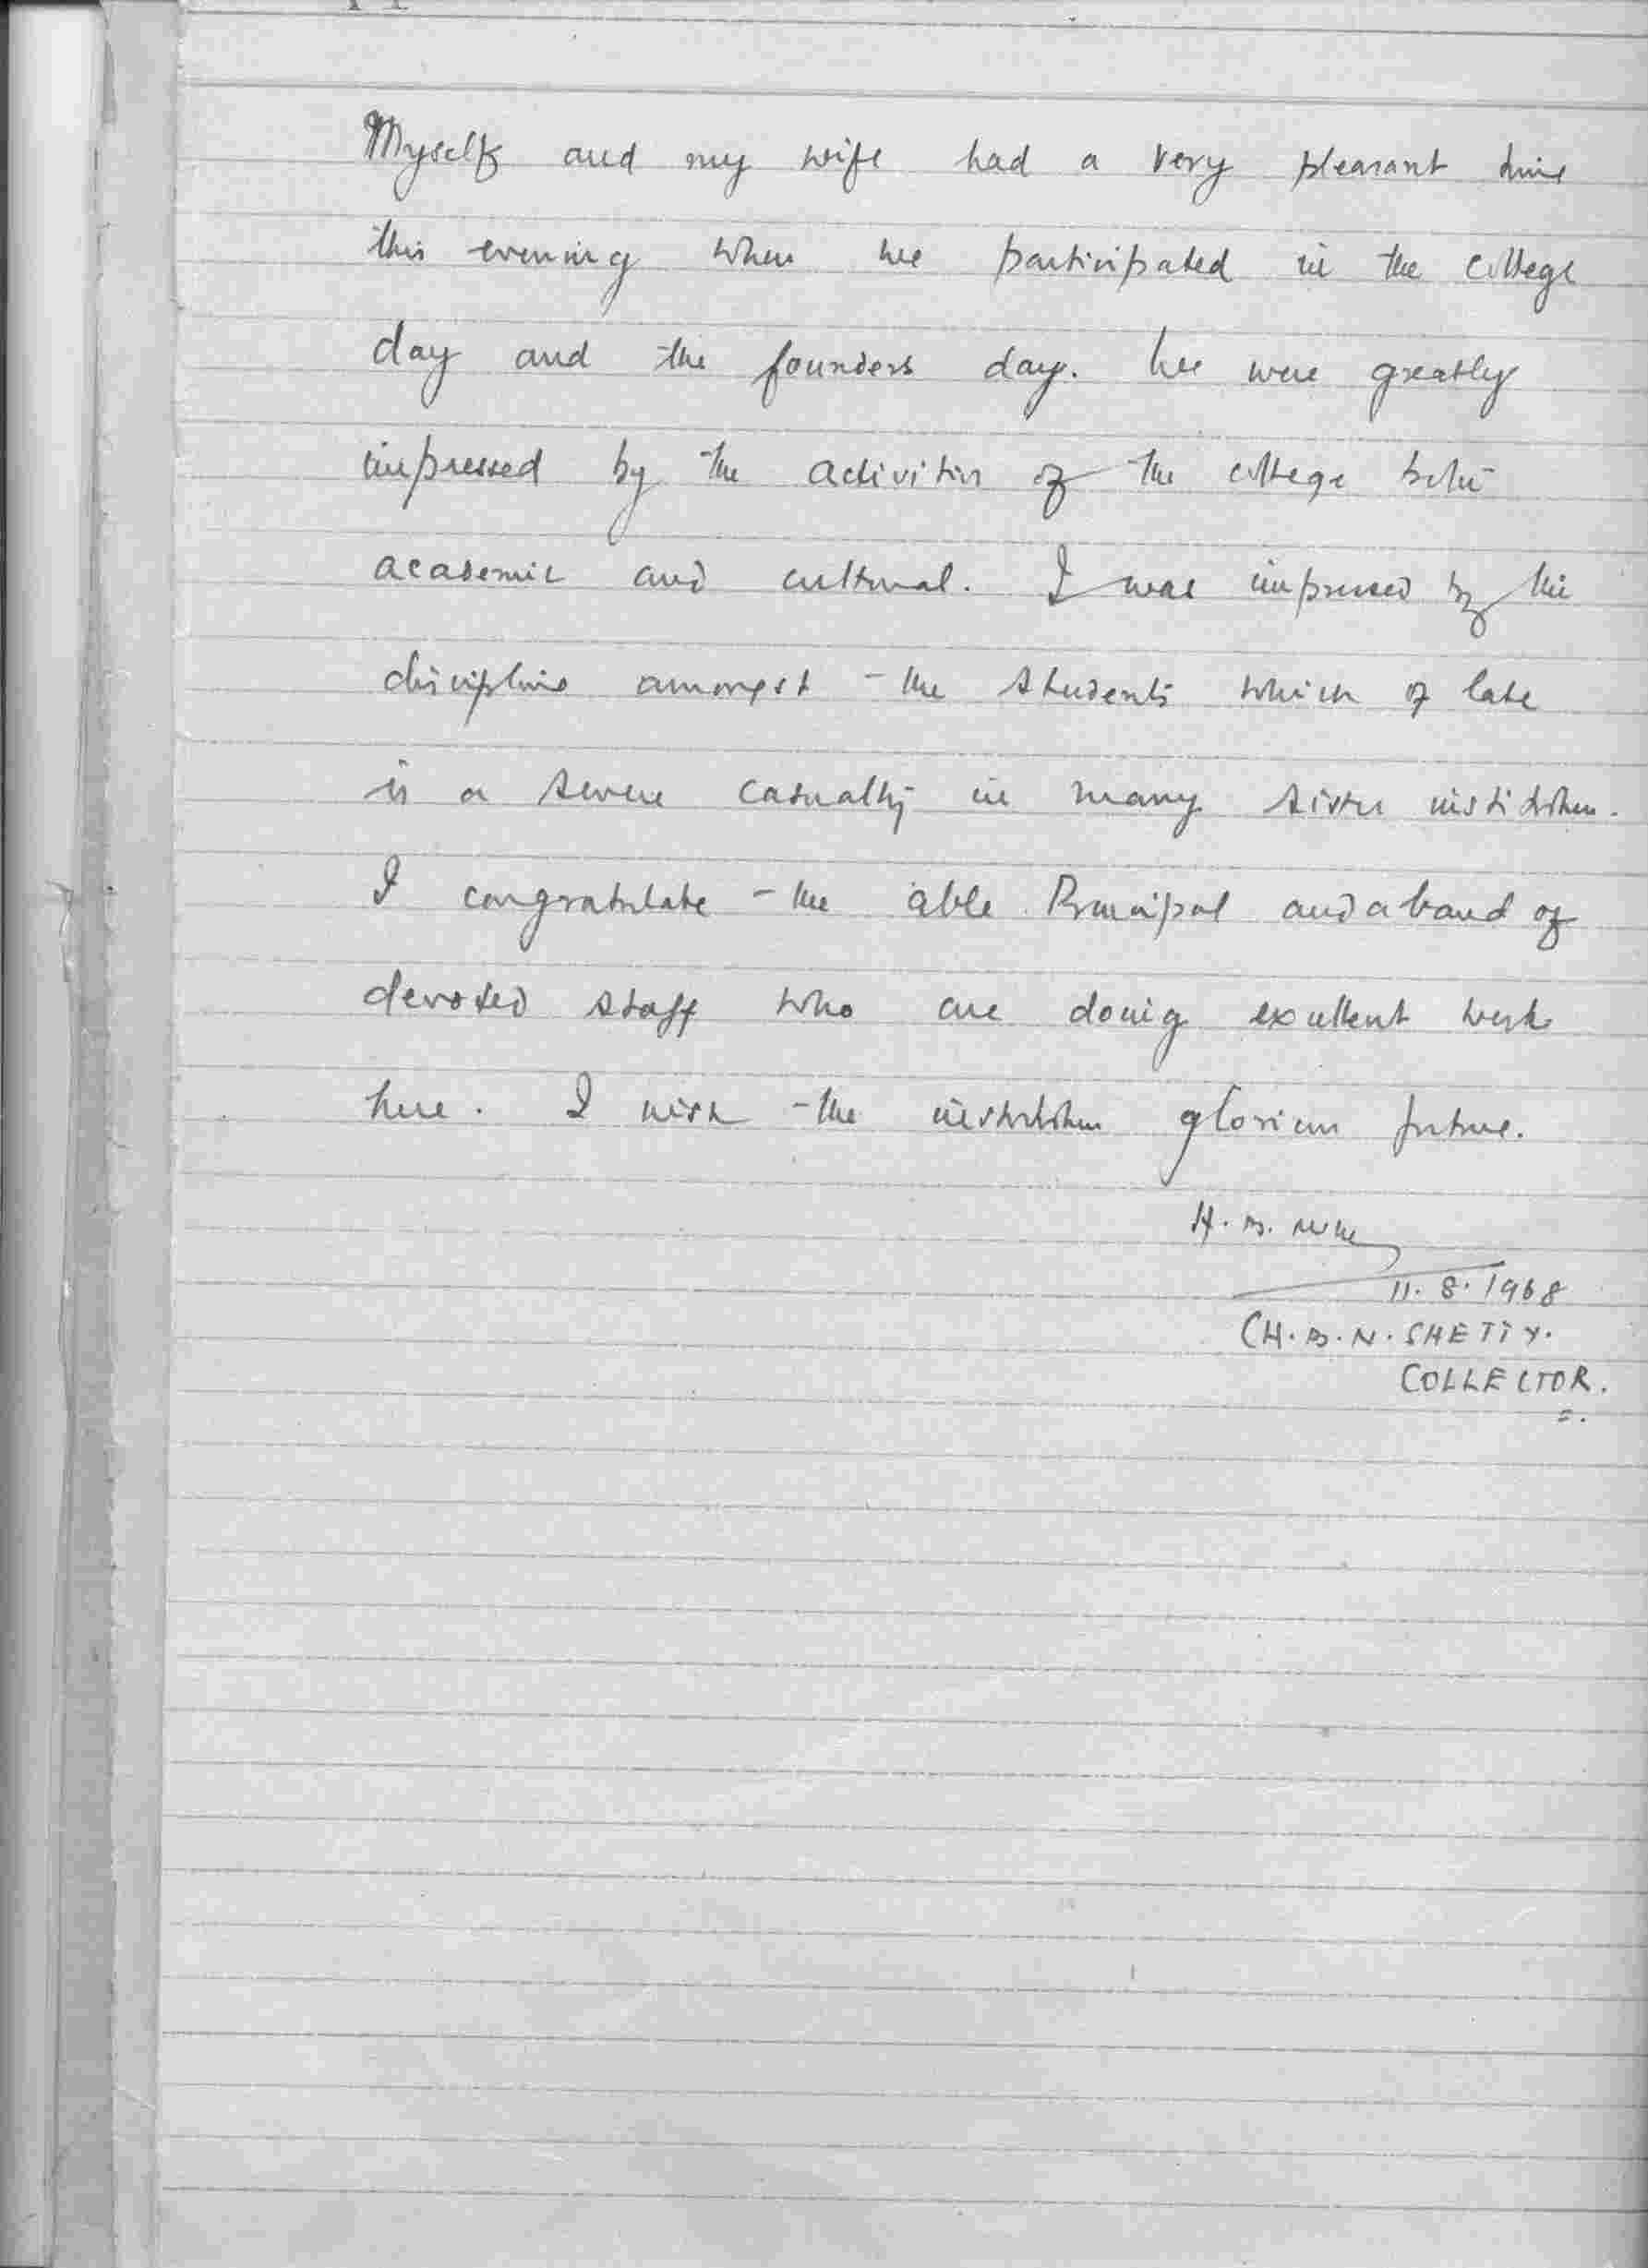 Myself and my wife had a very pleasant time
this evening when we participated in the college
day and the founders day. We were greatly
impressed by the activities of the college both
academic and cultural. I was impressed by the
discipline amongst the students which of late
is a severe casualty in many sister institution.
I congratulate the able Principal and a band of
devoted staff who are doing excellent work
here. I wish the institution glorious future.
H. B. N.
11. 8. 1968
(H. B. N. SHETTY.
COLLECTOR.